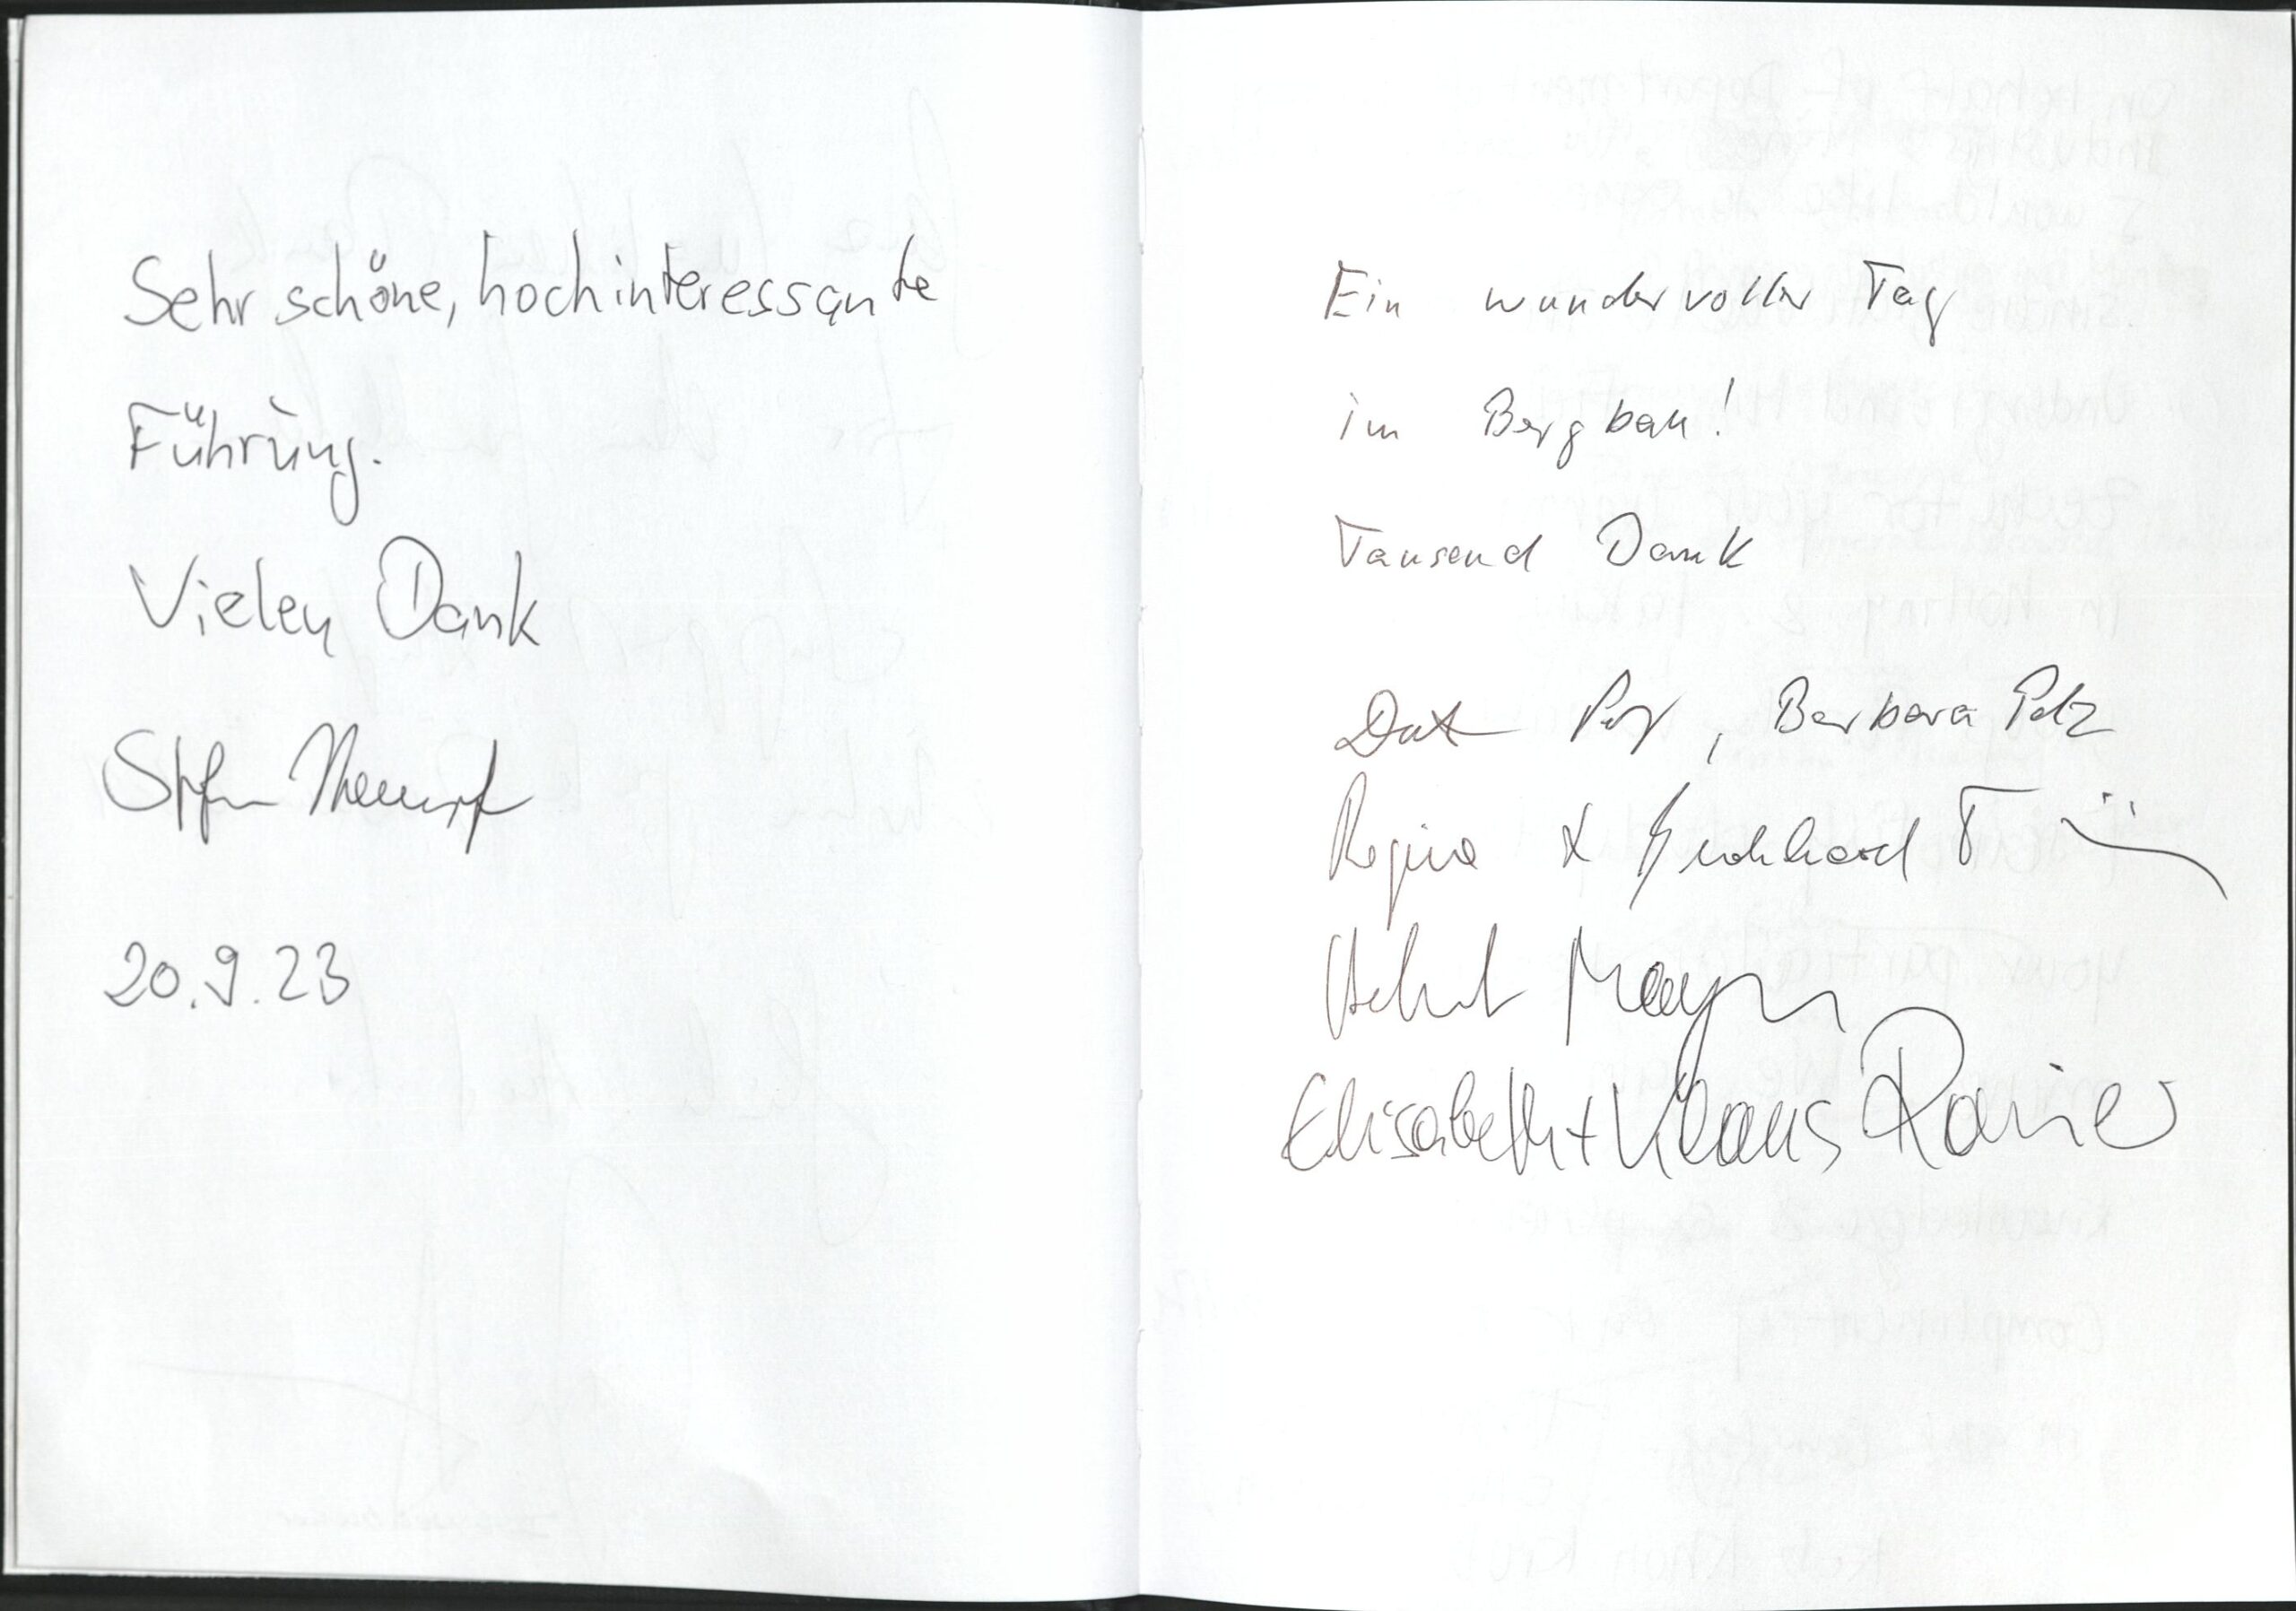 Sehr schöne, hochinteressante
Führung.
Vielen Dank
20.9.23
Ein wundervoller Tag
im Bergbau!
Tausend Dank
, Barbara Petz
Regina &
Helmut Mayr
Elisabeth + Klaus Rainer